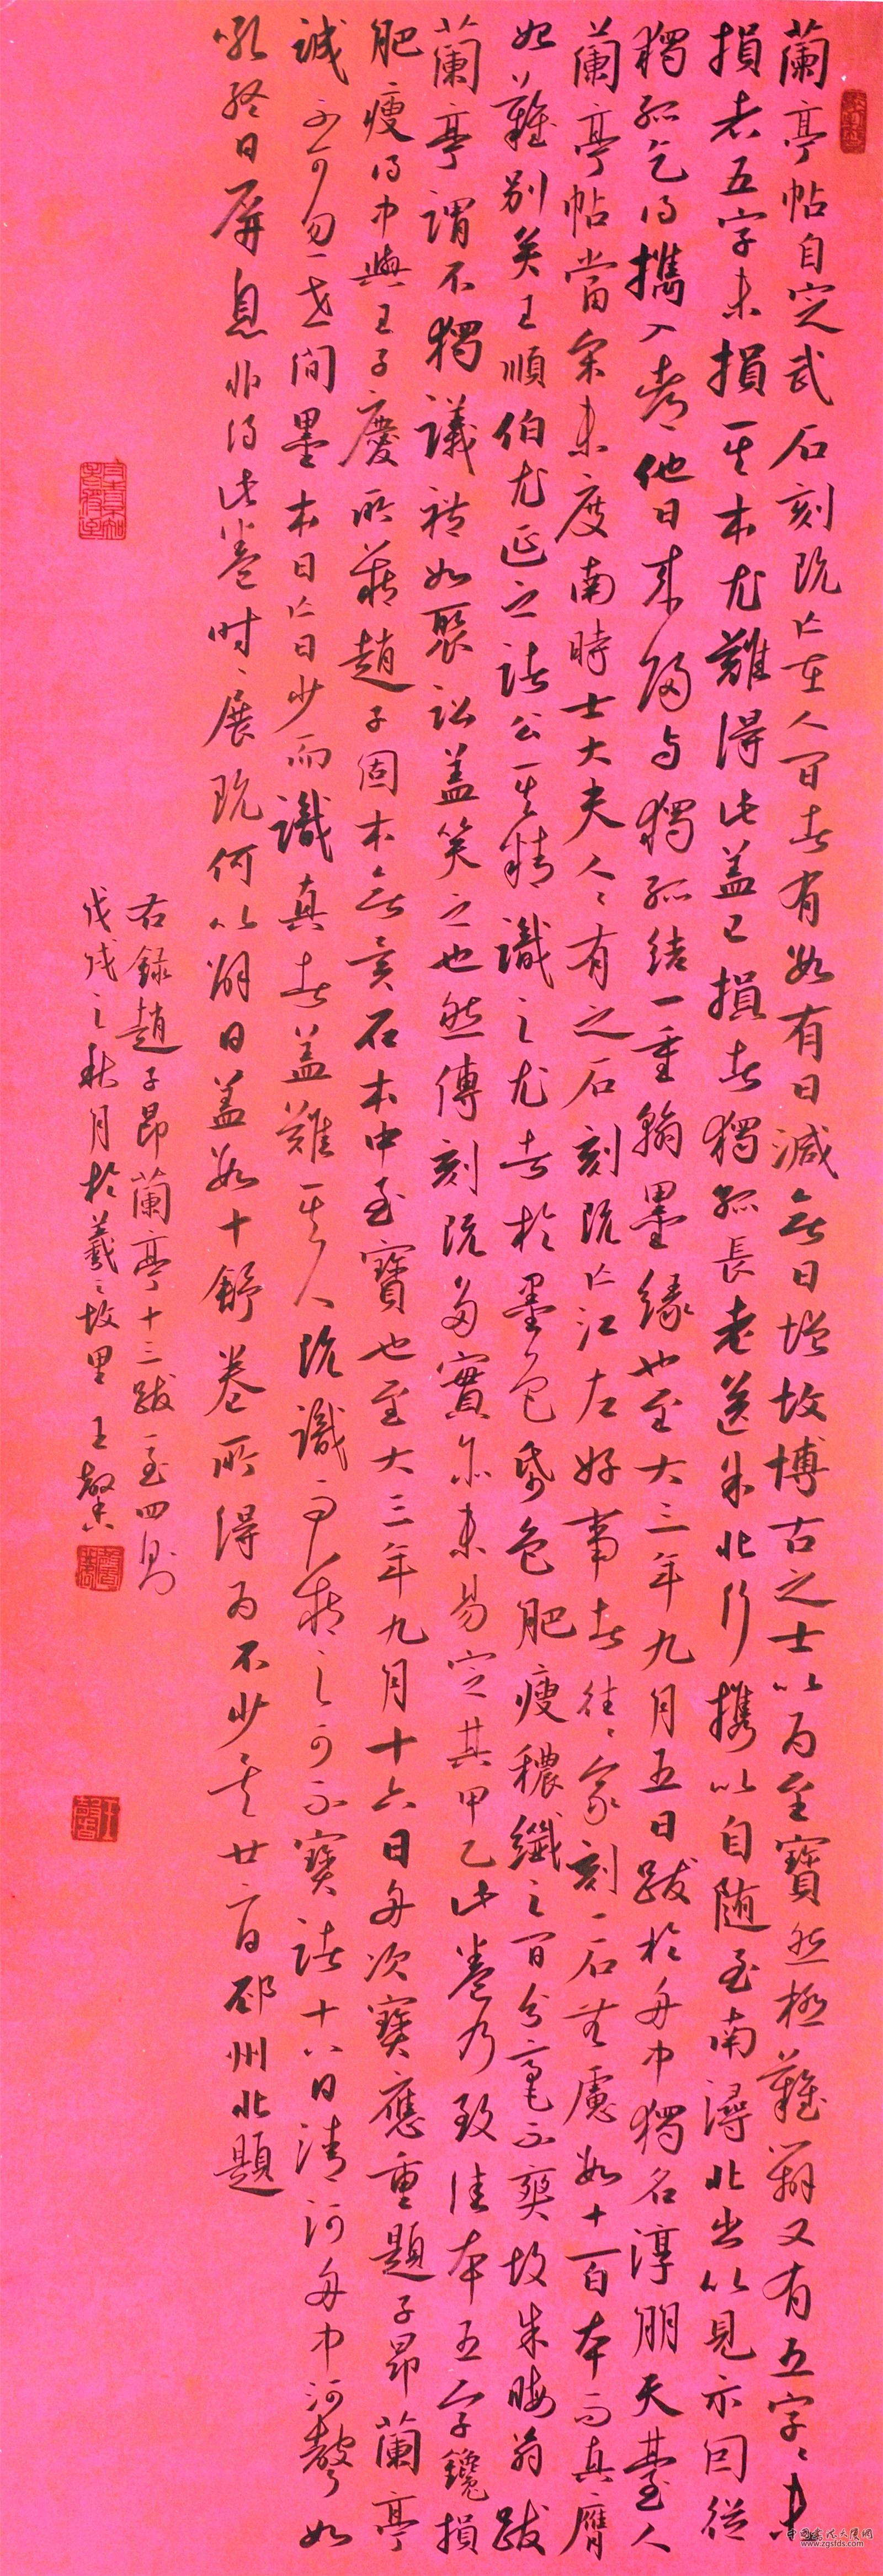 蘭亭帖自定武石刻既亡在人間者有數有日減無日增故博古之士以為至寶然極難辨又有五字未
損者五字未損其本尤難得此蓋已損者獨孤長老送余北行攜以自隨至南潯北出以見示因從
獨孤乞得攜入都他日來歸與獨孤結一重翰墨緣也至大三年九月五日跋於舟中獨孤名淳朋天臺人
蘭亭帖當宋未度南時士大夫人人有之石刻既亡江左好事者往往家刻一石無慮數十百本而真贗
始難別矣王順伯尤延之諸公其精識之尤者於墨色紙色肥瘦穠纖之間分毫不爽故朱晦翁跋
蘭亭謂不獨議禮如聚訟蓋笑之也然傳刻既多實亦未易定其甲乙此卷乃致佳本五字鑱損
肥瘦得中與王子慶所藏趙子固本無異石本中至寶也至大三年九月十六日舟次寶應重題子昂蘭亭
誠不可勿一世間墨本日亡日少而識真者蓋難其人既識而藏之可不寶諸十八日清河舟中河聲如
吼終日屏息非得此卷時時展玩何以解日蓋數十舒卷所得為不少矣廿二日邳州北題
右錄趙子昂蘭亭十三跋一至四則
戊戌之秋月於羲之故里王馨
中國書法大廈網
www.zgsfds.com